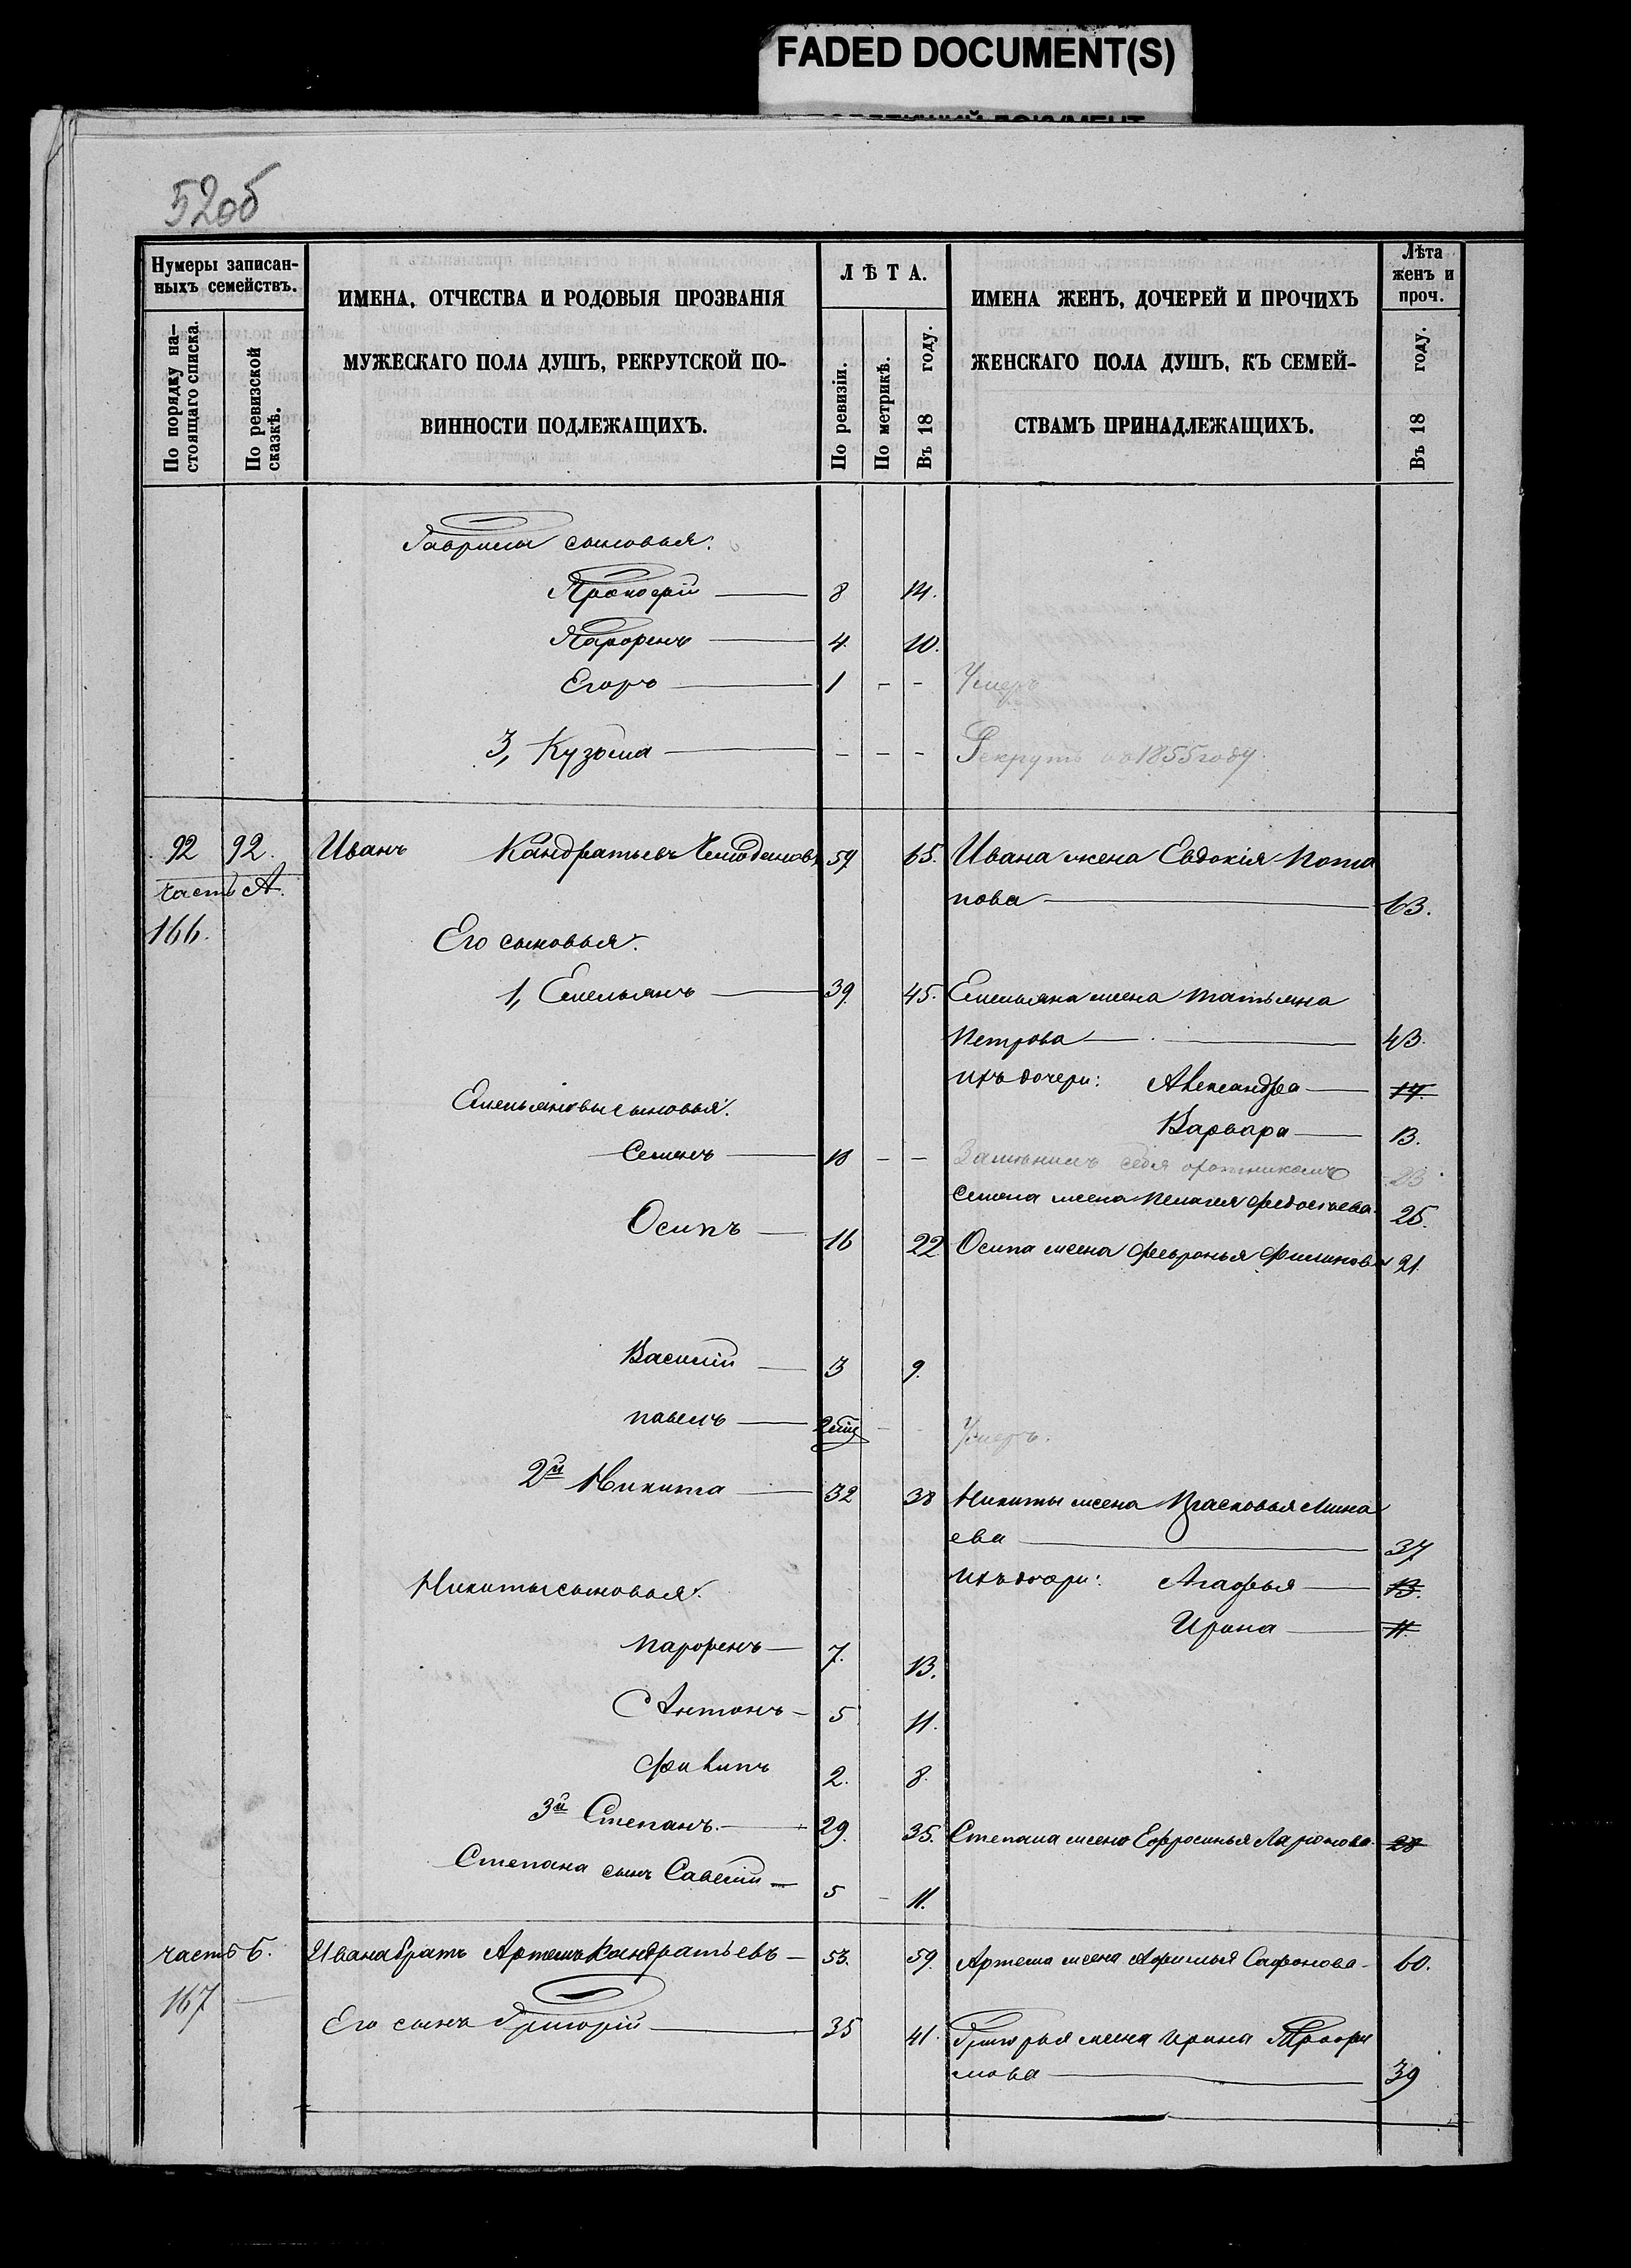 FADED DOCUMENT(S)
52об
Нумеры записан-
ныхъ семействъ.
По порядку на-
стоящаго списка.
По ревизской
сказкѣ.
ИМЕНА, ОТЧЕСТВА И РОДОВЫЯ ПРОЗВАНІЯ
МУЖЕСКАГО ПОЛА ДУШЪ, РЕКРУТСКОЙ ПО-
ВИННОСТИ ПОДЛЕЖАЩИХЪ.
ЛѢТА.
По ревизіи.
По метрикѣ.
Въ 18 году.
ИМЕНА ЖЕНЪ, ДОЧЕРЕЙ И ПРОЧИХЪ
ЖЕНСКАГО ПОЛА ДУШЪ, КЪ СЕМЕЙ-
СТВАМЪ ПРИНАДЛЕЖАЩИХЪ.
Лѣта
женъ и
проч.
Въ 18 году.
Гаврилы сыновья:
Прокофій 8 14.
Парфенъ 4 10.
Егоръ 1 - - Умеръ
3, Кузьма - - - Рекрутъ въ 1855 году.
92 92. Иванъ Кандратьевъ Чемодановъ 59 65. Ивана жена Евдокія Пота
часть А. пова 63.
166. Его сыновья.
1, Емельянъ 39 45. Емельяна жена Татьяна
Петрова 43.
ихъ дочери: Александра 17.
Емельяновы сыновья. Варвара 13.
Семенъ 18 - - Замѣнилъ себя охотникомъ 23
Семена жена Пелагея Федосѣева 25.
Осипъ 16 22 Осипа жена Февронья Филипова 21.
Василій 3 9.
Павелъ Умеръ.
2й Никита 32 38 Никиты жена Прасковья Мина
ева 37
Никиты сыновья. ихъ дочери: Агафья 13.
Ирина 11.
Парфенъ 7. 13.
Антонъ 5 11.
Филипъ 2. 8.
3й Степанъ. 29. 35. Степана жена Ефросинья Ларионова 28
Степана сынъ Савелій 5 - 11.
часть Б. Ивана братъ Артемъ Кандратьевъ 53. 59. Артема жена Афимья Сафонова 60.
167 Его сынъ Григорій 35 41. Григорья жена Ирина Трофи
мова 39